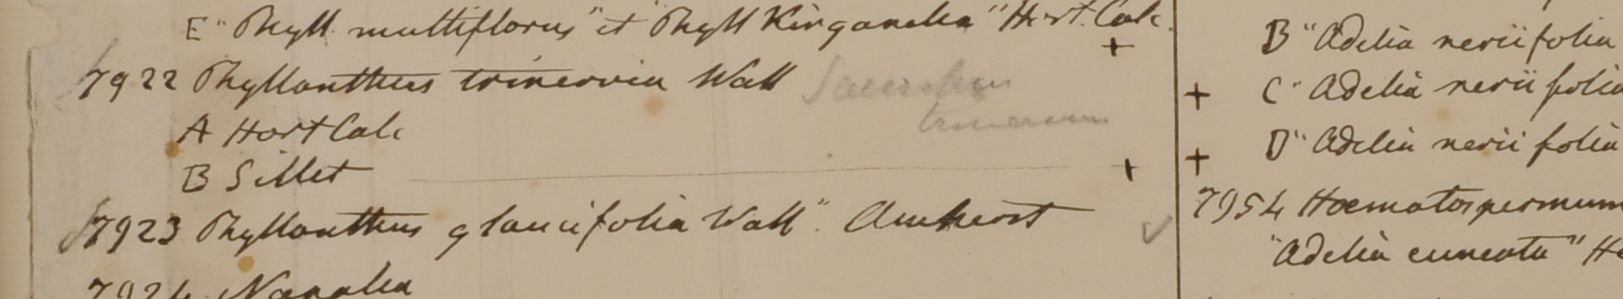 E "Phyll. multiflorus" et "Phyll Kirganelia" Hort. Calc.
7922 Phyllanthus trinervia Wall
A Hort Calc
B Sillet
7923 Phyllanthus glaucifolia Wall". Amherst
7924
B "Adelia neriifolia
C "Adelia neriifolia
D "Adelia neriifolia
7954 Haematospermum
"Adelia cuneata" H